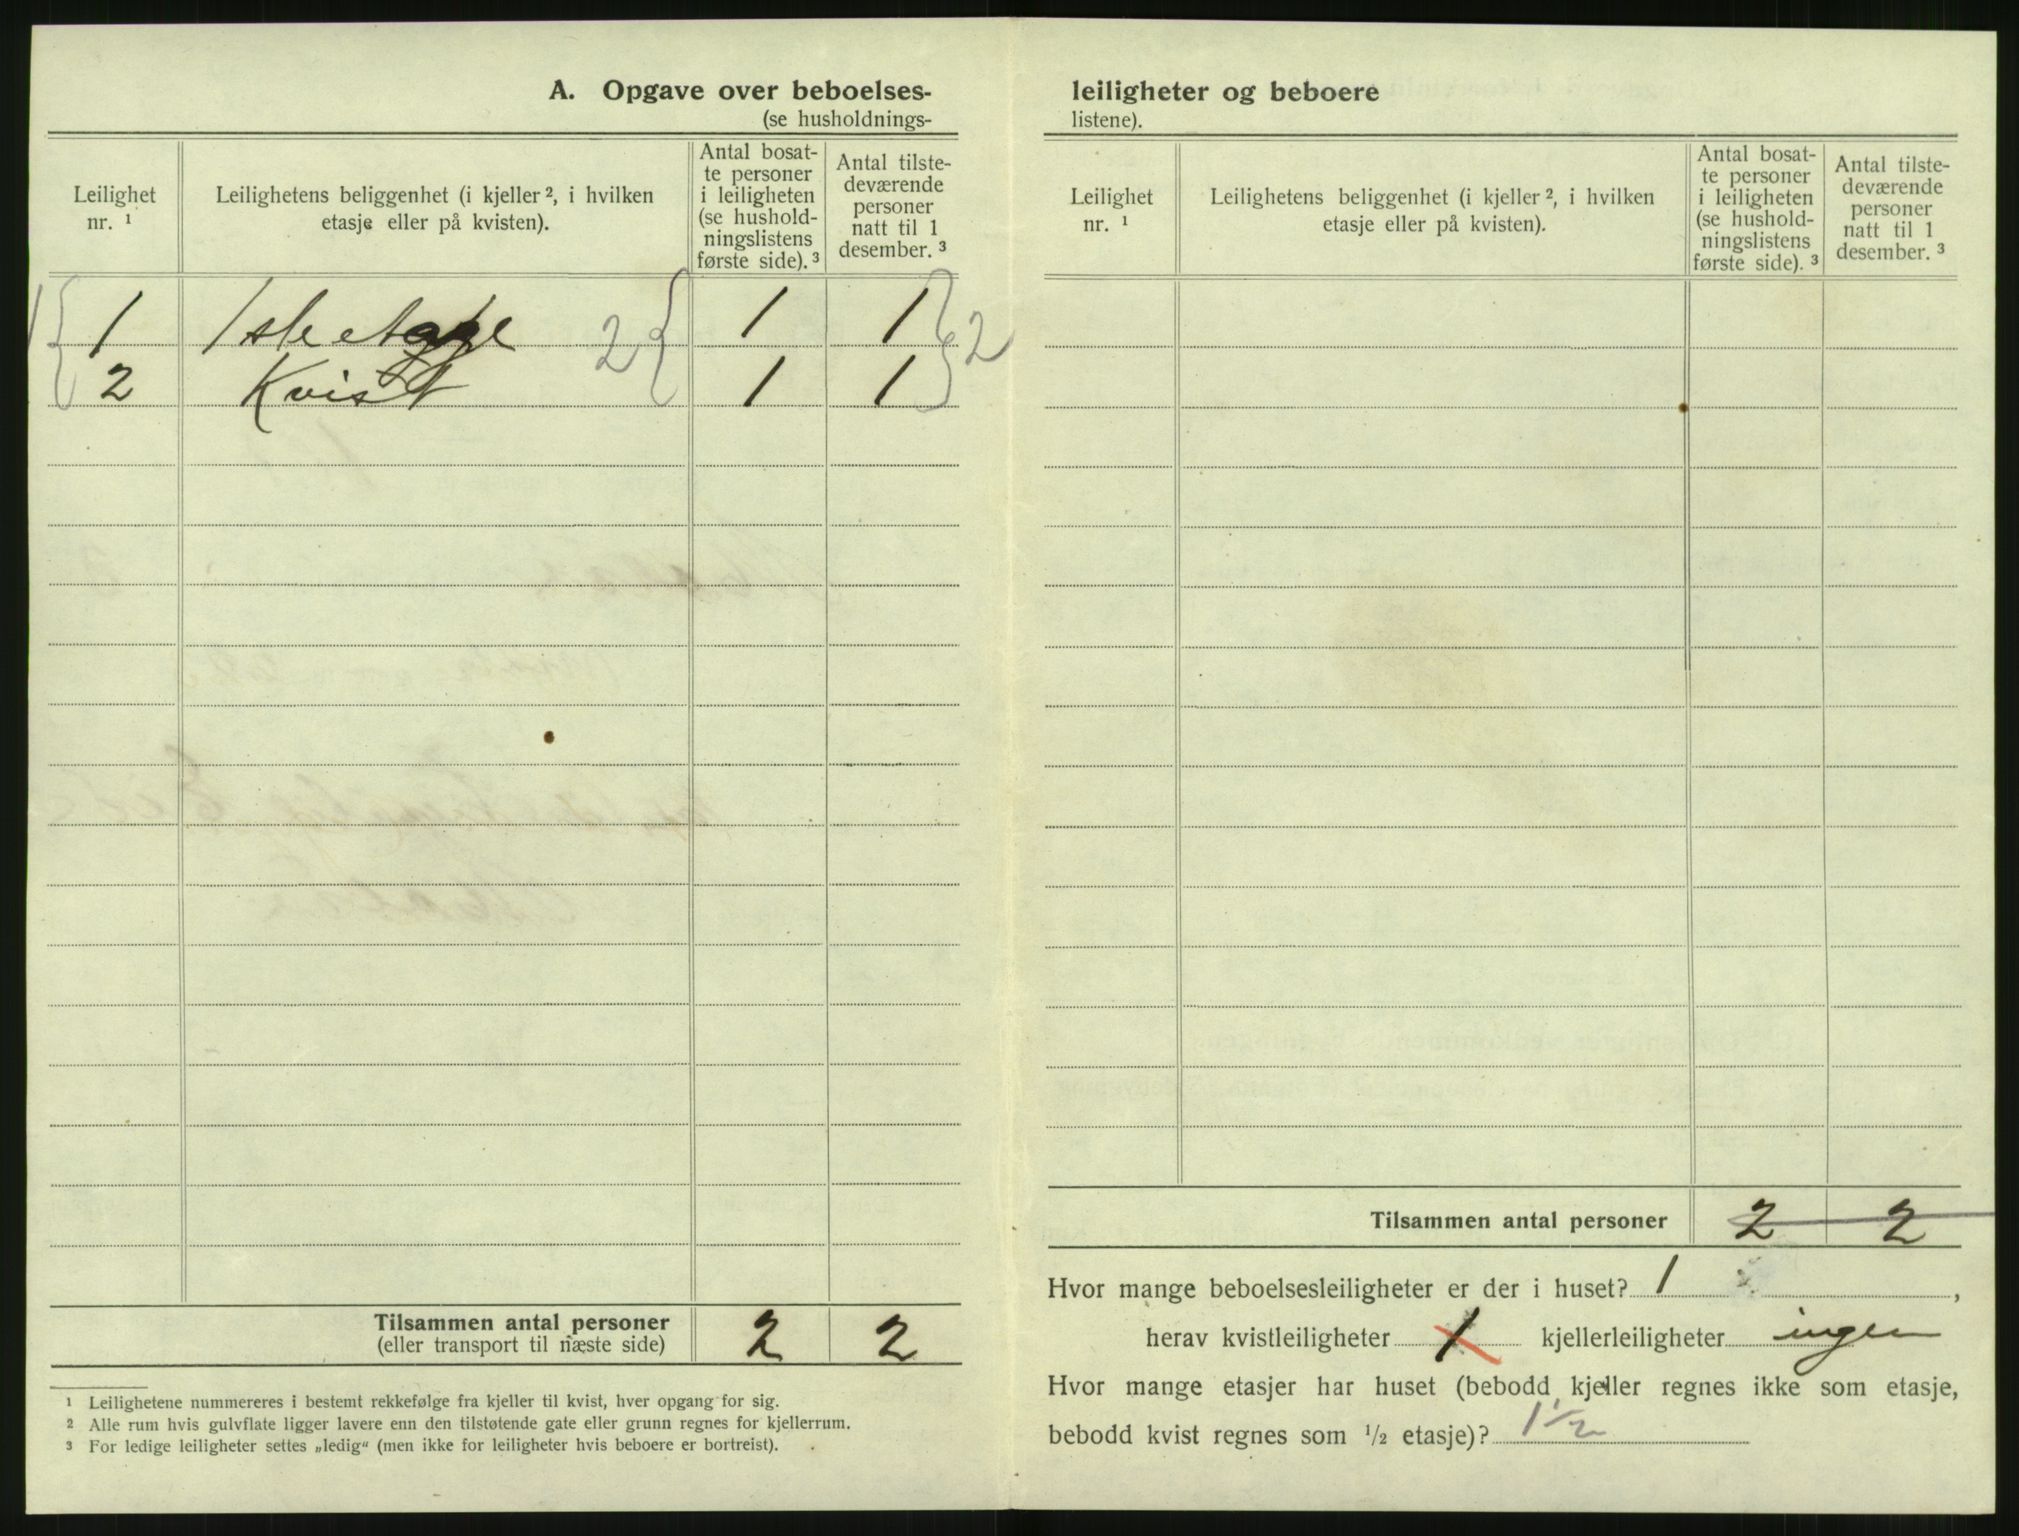 A. Opgave over beboelses-
(se husholdnings-
Leilighet
nr. ¹
Leilighetens beliggenhet (i kjeller ², i hvilken
etasje eller på kvisten).
Antal bosat-
te personer
i leiligheten
(se hushold-
ningslistens
første side). ³
Antal tilste-
deværende
personer
natt til 1
desember. ³
1 { 1 1ste etage 2 { 1 1 } 2
2 Kvist 1 1
Tilsammen antal personer
(eller transport til næste side) 2 2
¹ Leilighetene nummereres i bestemt rekkefølge fra kjeller til kvist, hver opgang for sig.
² Alle rum hvis gulvflate ligger lavere enn den tilstøtende gate eller grunn regnes for kjellerrum.
³ For ledige leiligheter settes „ledig“ (men ikke for leiligheter hvis beboere er bortreist).
leiligheter og beboere
listene).
Leilighet
nr. ¹
Leilighetens beliggenhet (i kjeller ², i hvilken
etasje eller på kvisten).
Antal bosat-
te personer
i leiligheten
(se hushold-
ningslistens
første side). ³
Antal tilste-
deværende
personer
natt til 1
desember. ³
Tilsammen antal personer 2 2
Hvor mange beboelsesleiligheter er der i huset? 1 ,
herav kvistleiligheter 1 kjellerleiligheter ingen
Hvor mange etasjer har huset (bebodd kjeller regnes ikke som etasje,
bebodd kvist regnes som ½ etasje)? 1 ½